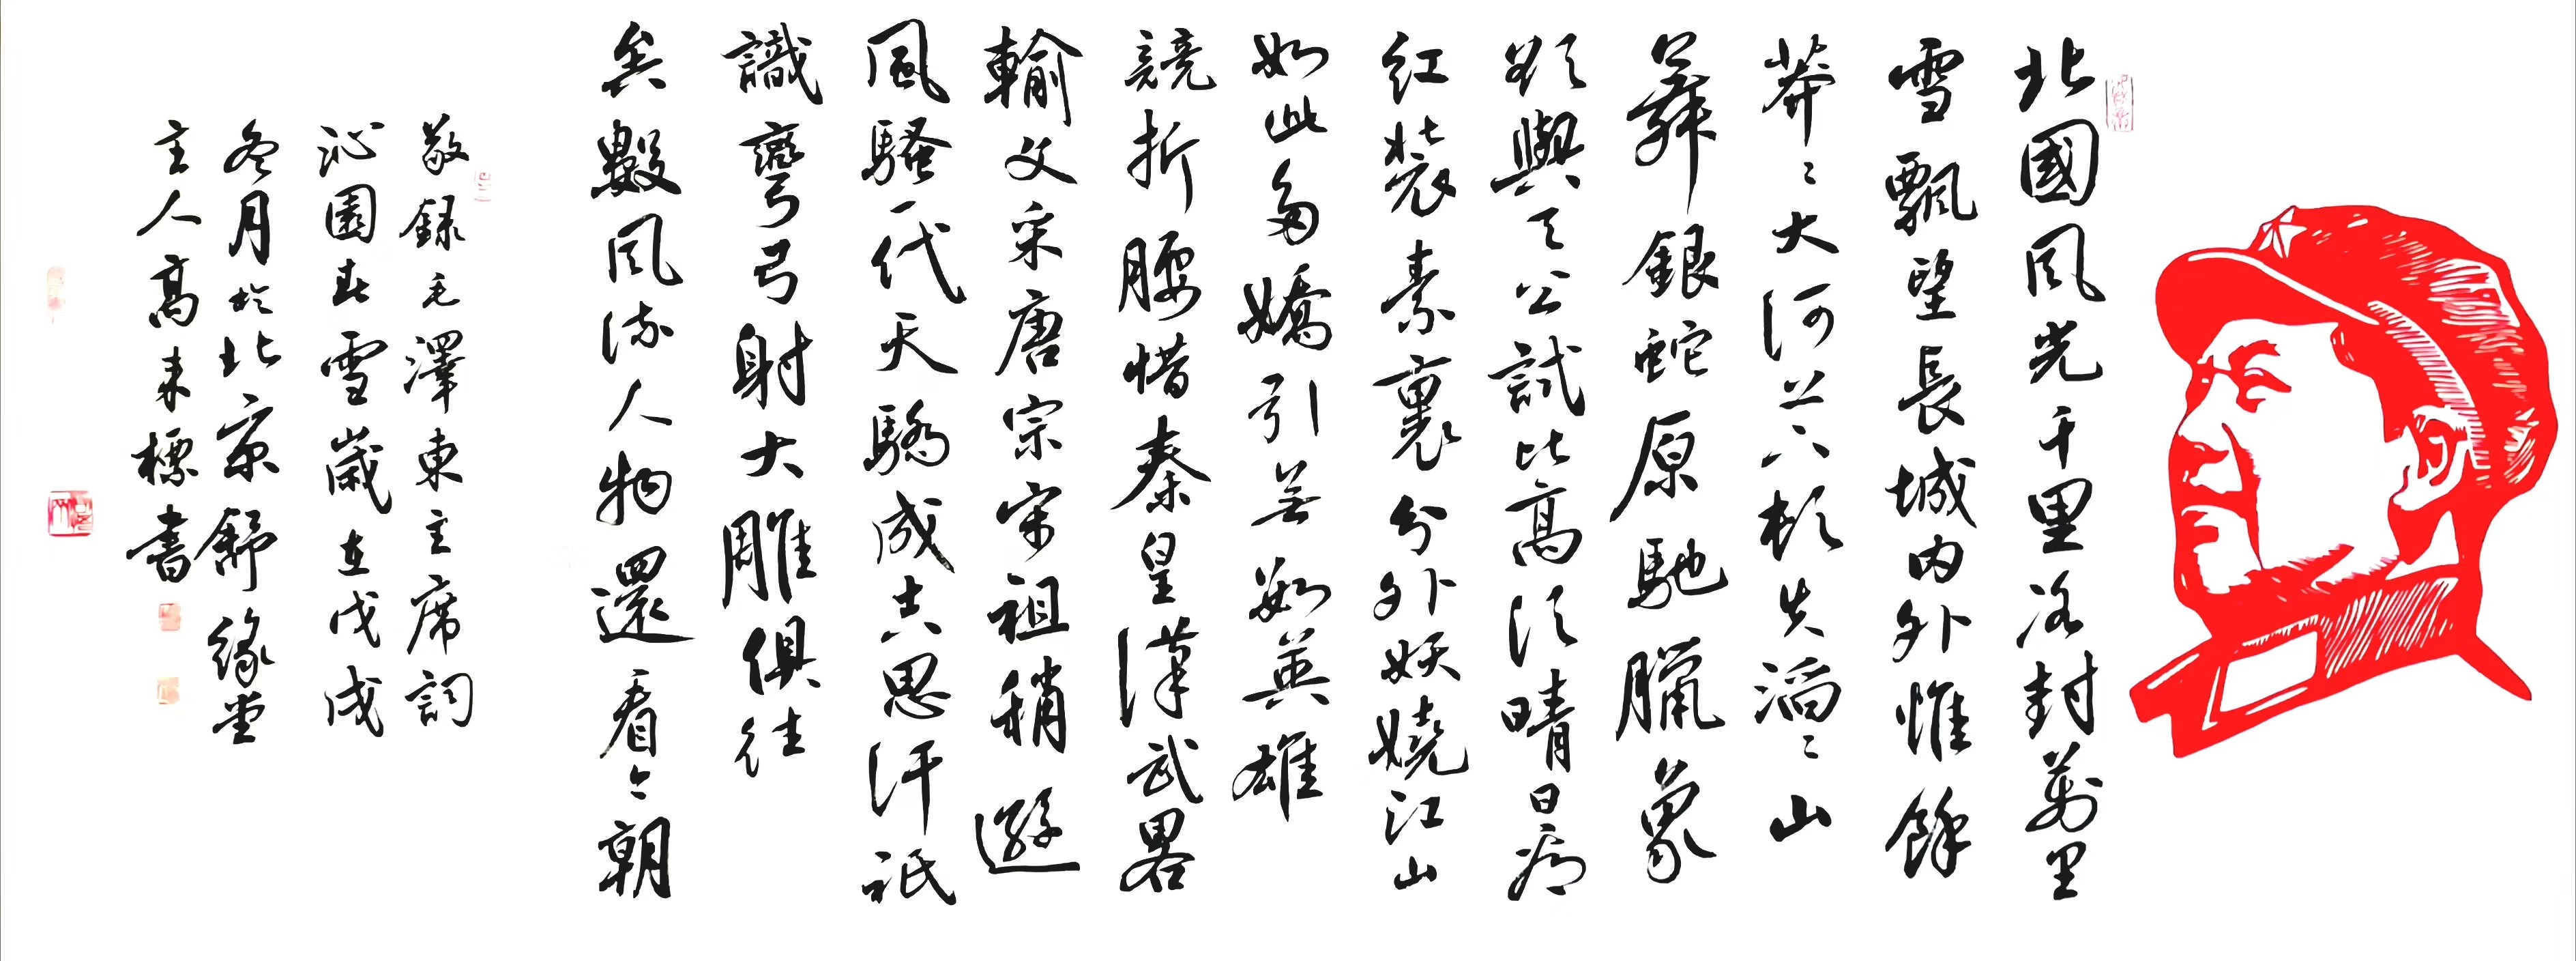 北國風光千里冰封萬里
雪飄望長城内外惟餘
莽〻大河上下頓失滔〻山
舞銀蛇原馳臘象
欲與天公試比高須晴日看
紅裝素裹分外妖嬈江山
如此多嬌引無數英雄
競折腰惜秦皇漢武畧
輸文采唐宗宋祖稍遜
風騷一代天驕成吉思汗祇
識彎弓射大雕俱往
矣數風流人物還看今朝
敬録毛澤東主席詞
沁園春雪歲在戊戌
冬月於北京舒緣堂
主人高来標書